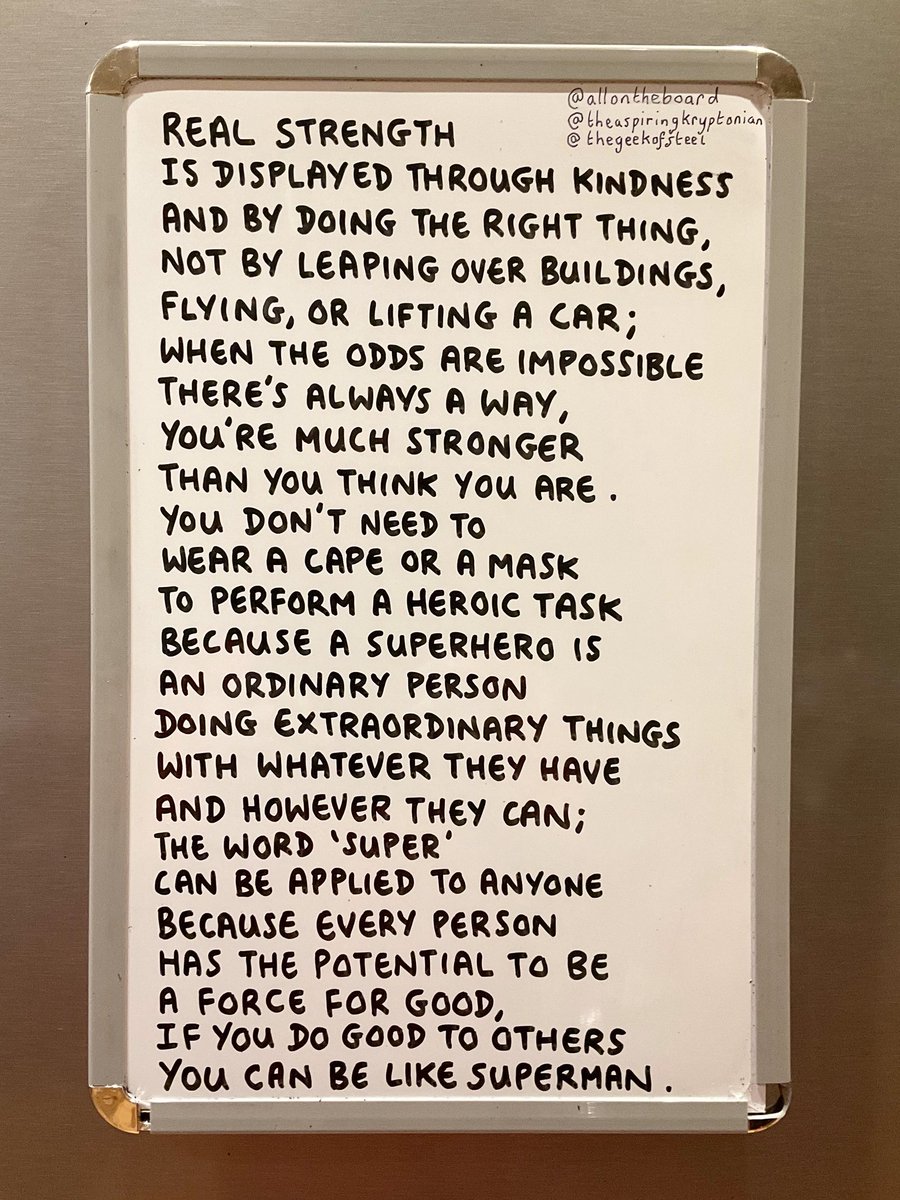 @allontheboard
@theaspiringkryptonian
@thegeekofsteel
REAL STRENGTH
IS DISPLAYED THROUGH KINDNESS
AND BY DOING THE RIGHT THING,
NOT BY LEAPING OVER BUILDINGS,
FLYING, OR LIFTING A CAR;
WHEN THE ODDS ARE IMPOSSIBLE
THERE'S ALWAYS A WAY,
YOU'RE MUCH STRONGER
THAN YOU THINK YOU ARE.
YOU DON'T NEED TO
WEAR A CAPE OR A MASK
TO PERFORM A HEROIC TASK
BECAUSE A SUPERHERO IS
AN ORDINARY PERSON
DOING EXTRAORDINARY THINGS
WITH WHATEVER THEY HAVE
AND HOWEVER THEY CAN;
THE WORD 'SUPER'
CAN BE APPLIED TO ANYONE
BECAUSE EVERY PERSON
HAS THE POTENTIAL TO BE
A FORCE FOR GOOD,
IF YOU DO GOOD TO OTHERS
YOU CAN BE LIKE SUPERMAN.